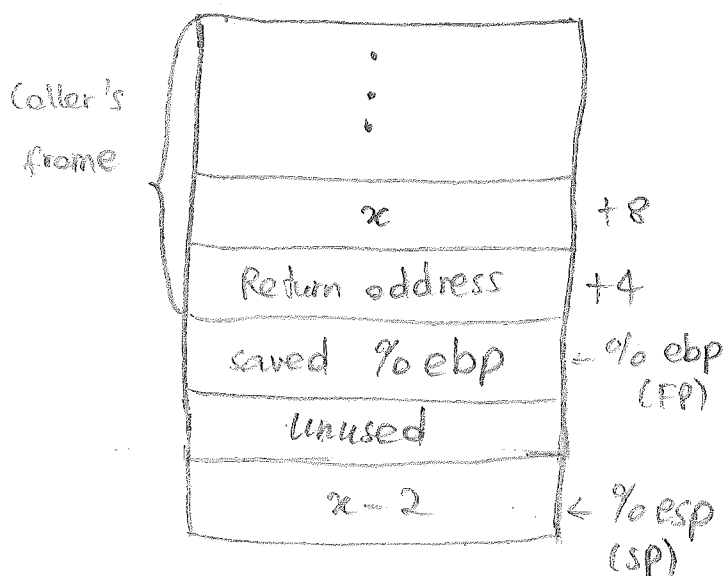 Caller's
frame
x +8
Return address +4
saved % ebp ← % ebp
(FP)
Unused
x - 2 ← % esp
(SP)